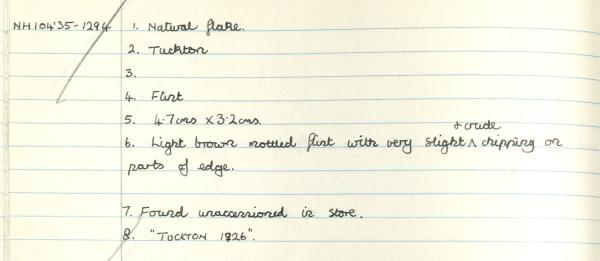 NH104'35-1294 1. Natural flake.
2. Tuckton
3.
4. Flint
5. 4.7cms x 3.2cms.
+ crude
6. Light brown mottled flint with very slight ^ chipping on
parts of edge.
7. Found unaccessioned in store.
8. "TUCKTON 1926".